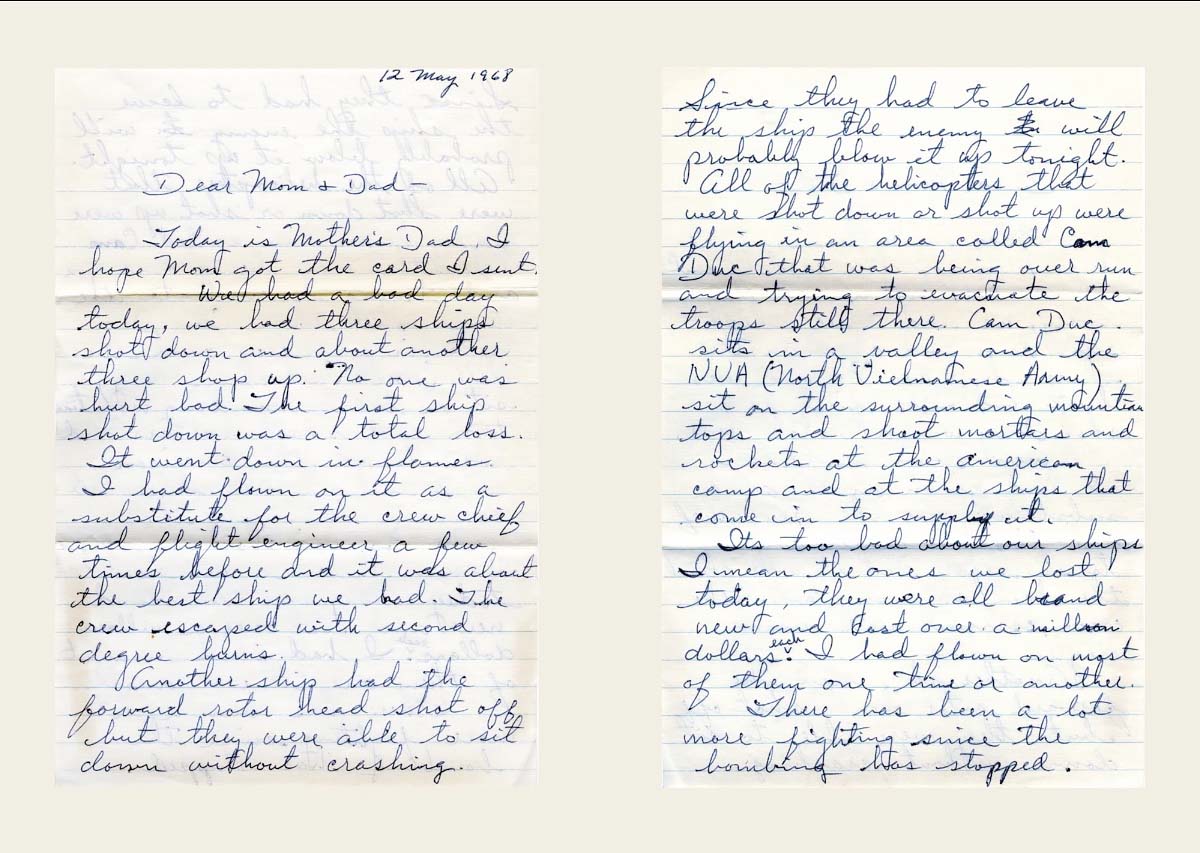 12 May 1968
Dear Mom & Dad –
Today is Mother's Dad, I
hope Mom got the card I sent.
We had a bad day
today, we had three ships
shot down and about another
three shop up. No one was
hurt bad. The first ship
shot down was a total loss.
It went down in flames.
I had flown on it as a
substitute for the crew chief
and flight engineer a few
times before and it was about
the best ship we had. The
crew escaped with second
degree burns.
Another ship had the
forward rotor head shot off
but they were able to sit
down without crashing.
Since they had to leave
the ship the enemy will
probably blow it up tonight.
All of the helicopters that
were shot down or shot up were
flying in an area called Cam
Duc that was being over run
and trying to evacuate the
troops still there. Cam Duc
sits in a valley and the
NVA (North Vietnamese Army)
sit on the surrounding mountian
tops and shoot mortars and
rockets at the american
camp and at the ships that
come in to supply it.
Its too bad about our ships
I mean the ones we lost
today, they were all brand
new and cost over a million
dollars each. I had flown on most
of them one time or another.
There has been a lot
more fighting since the
bombing was stopped.